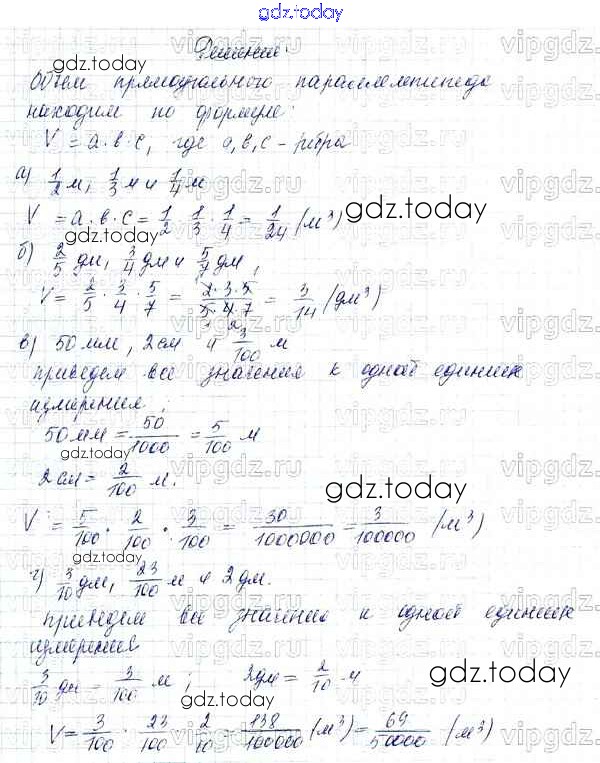 gdz.today
Решение.
Объем прямоугольного параллелепипеда
находим по формуле:
V = a · в · c, где a, в, c - ребра
а) 1/2 м, 1/3 м и 1/4 м
V = a · в · c = 1/2 · 1/3 · 1/4 = 1/24 (м³)
gdz.today
б) 2/5 дм, 3/4 дм и 5/7 дм,
gdz.today
V = 2/5 · 3/4 · 5/7 = 2·3·5/5·4·7 = 3/14 (дм³)
в) 50 мм, 2 см и 3/100 м
gdz.today
приведем все значения к одной единице
измерения:
50 мм = 50/1000 = 5/100 м
gdz.today
2 см = 2/100 м.
gdz.today
V = 5/100 · 2/100 · 3/100 = 30/1000000 = 3/100000 (м³)
gdz.today
г) 3/10 дм, 23/100 м и 2 дм.
приведем все значения к одной единице
измерения
3/10 дм = 3/100 м; 2дм = 2/10 м
gdz.today
gdz.today
V = 3/100 · 23/100 · 2/10 = 138/100000 (м³) = 69/50000 (м³)